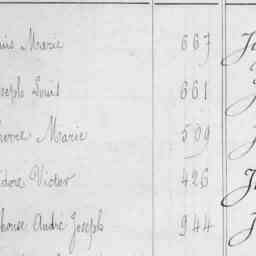 uis Marie 667
oseph Louis 661
ierre Marie 509
idore Victor 426
phonse André Joseph 944